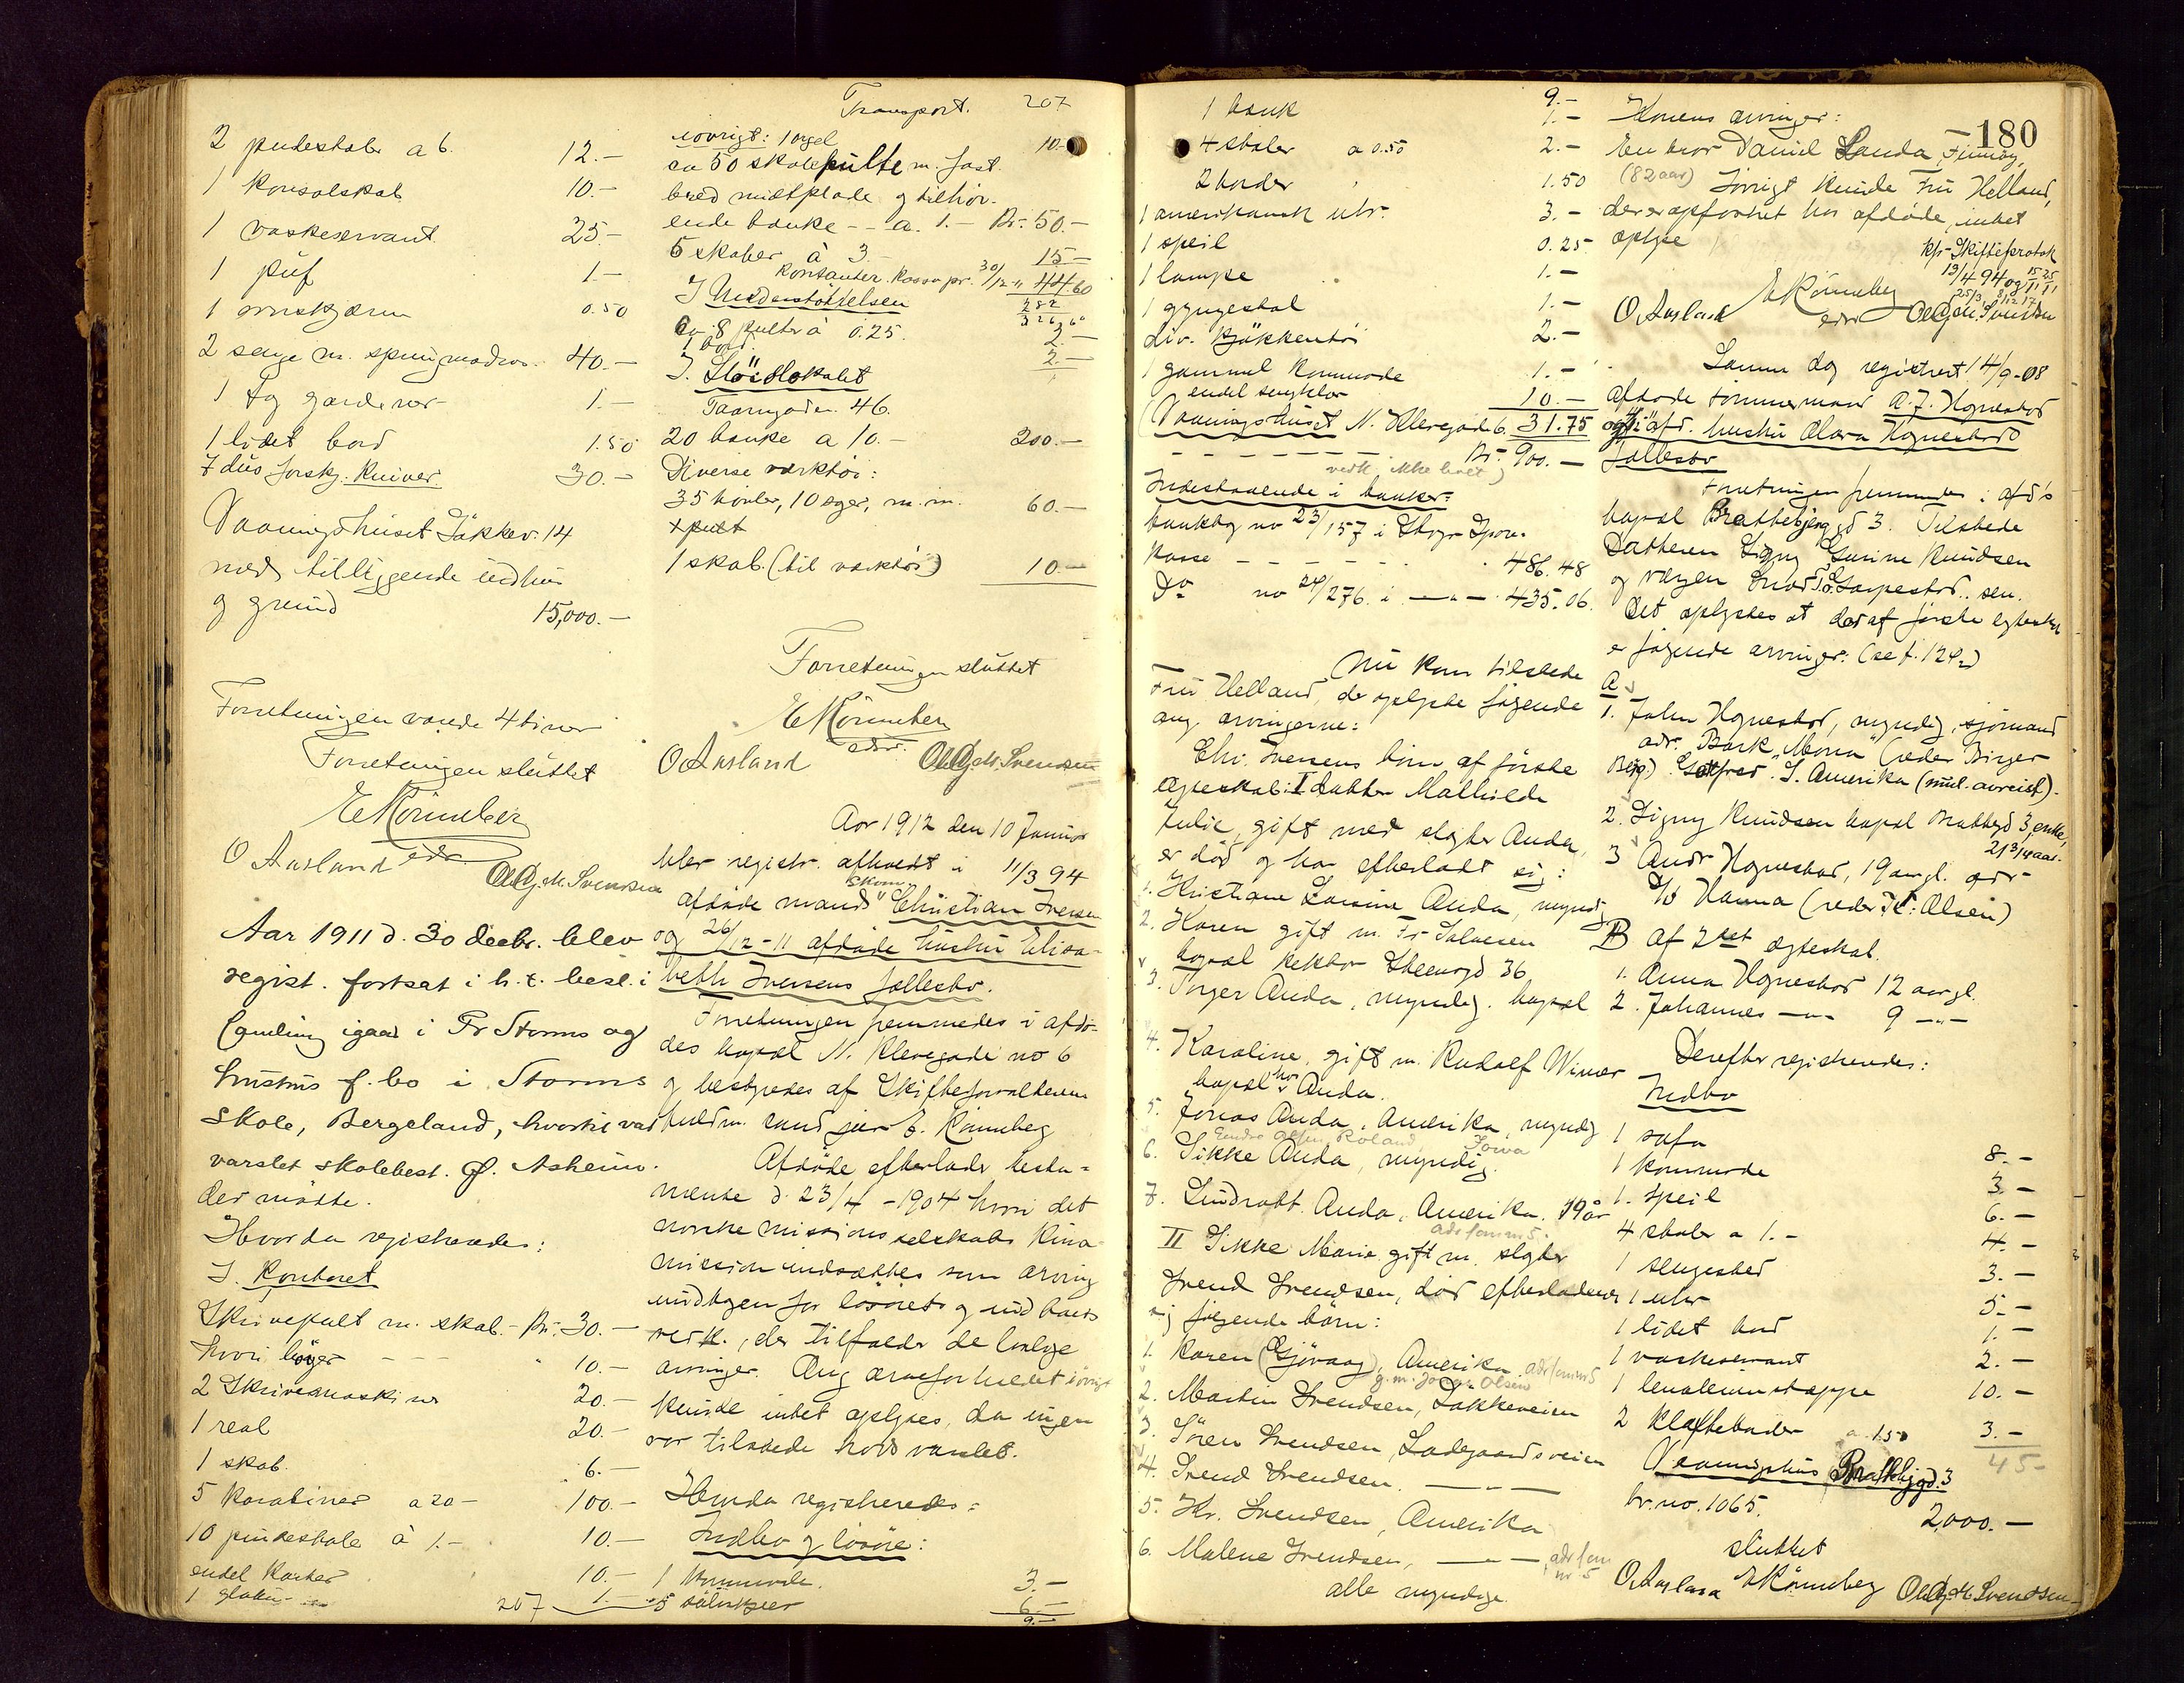 2 pudestoler a 6. 12.-
1 Konsolskab 10.-
1 vaskeservant 25.-
1 puf 1.-
1 ovnskjærm 0.50
2 senge m. springmadras. 40.-
1 tøj garderobe 1.-
1 lidet bord 1.50
7 dus forskj. Kniver 30.-
Vaaningshuset Løkkev. 14
med tilliggende udhus
og grund 15,000.-
Forretningen varede 4 timer
Forretningen sluttet
E Rönneberg
edsv.
O Aasland Ole G. M. Svendsen
Aar 1911 d. 30 decbr. blev
regist. fortsat i h. t. besl. i
samling igaar i Fr Storms og
hustrus f. bo i Storms
skole, Bergeland, hvortil var
varslet skolebest. O. Asheim.
der mötte.
Hvor da registreredes:
I. Kontoret
Skrivepult m. skab. - Kr. 30.-
hvori bøger - - - " 10.-
2 Skrivemaskiner 20.-
1 reol 20.-
1 skab. 6.-
5 Karabiner a 20- 100.-
10 pindestole à 1.- 10.-
endel Karter 10.-
1 globus 1.-
207
Transport. 207
iøvrigt: 1 orgel 10.-
ca 50 skolepulte m. fast.
bred midtplade og tilhør-
ende bænke - - a. 1.- Kr. 50.-
5 skaber à 3.- 15.-
Kontanter. Kassa pr. 30/12-11 44.60
282
326.60
I Understøttelsen
Ca 8 pulter à 0.25. 2.-
1 bord. 2.-
I. Slöidlokalet
Taarngaden 46.
20 bænke a 10.- 200.-
Diverse værktøi:
35 høvler, 10 sager, m. m. 60.-
1 skab. (til værktøi) 10.-
Forretningen sluttet
E Rönneberg
edsv.
O Aasland Ole G. M. Svendsen
Aar 1912 den 10 Januar
blev registr. afholdt i 11/3 94
afdøde skom. mand Christian Iversen
og 26/12-11 afdøde hustru Elisa-
beth Iversens fællesbo.
Forretningen fremmedes i afdø-
des bopæl N. Klevegade no 6
og bestyredes af Skifteforvalterens
fuldm. cand jur E. Rönneberg
Afdøde efterlader testa-
mente d. 23/4 -1904 hvori det
norske missionsselskabs Kina
mission indsættes som arving
undtagen for løsøret og
, der tilfalder de lovlige
arvinger. Ang arveforholdet iøvrigt
kunde intet oplyses, da ingen
var tilstede trods varslet.
Herda registreredes:
Indbo og løsøre:
1 Kommode. 3.-
6.-
9.-
180
1 bænk 9.-
1.-
4 stoler a 0.50 2.-
2 border 1.50
1 amerikansk uhr. 3.-
1 speil 0.25
1 lampe 1.-
1 gyngestol 1.-
div. Kjøkkentøi 2.-
1 gammel Kommode 1.-
endel sengklær 10.-
31.75
Vaaningshuset N. Klevegade 6.
Kr. 900.-
Indestaaende i banker:
bankbog no 23/157 i Stvgr Spare-
kasse - - - - - 486.48
Do no 24/276. i - " - 435.06.
Nu kom tilstede
Fru Helland, der oplyste følgende
ang. arvingerne:
Chr. Iversens børn af første
ægteskab: I datter Mathilde
Julie, gift med slagter Anda,
er død og har efterladt sig:
1. Kristiane Lovise Anda, myndig
2. Karen gift m. Fr Salvesen
bopæl Steensgd 36.
3. Torger Anda, myndig. bopæl
4. Karoline, gift m. Rudolf Wimer
bopæl hos Anda.
5. Jonas Anda, Amerika, myndig
Roland Iowa
6. Sikke Anda, myndig.
7. Sindratt Anda, Amerika. 19 år
adr som no 5.
II Sikke Marie gift m. slagter
Svend Svendsen, død efterladende
sig følgende børn:
1. Karen (Gjøvaag), Amerika adr som no 5
g. m. Olsen
2. Martin Svendsen, Løkkeveien
3. Søren Svendsen, Ladegaardsveien
4. Svend Svendsen. - " -
5. Kr. Svendsen, Amerika
6. Malene Svendsen, - " - adr som no 5
alle myndige.
Konens arvinger:
En bror Daniel Landa, Finnøy,
(82 aar) Iøvrigt kunde Fru Helland,
der er opfostret hos afdøde, intet
oplyse
kfr. Skifteprotok
13/4 94 og
E Rönneberg
edsv
O. Aasland Ole G. M. Svendsen
Samme dag registrert 14/9-08
afdøde tømmermand A. J. Hognestad
og afd. hustru Olava Hognestads
fællesbo
Forretningen fremmedes i afd's
bopæl Bratbergsgd 3. Tilstede
Datteren Signy Gurine Knudsen
og vergen
Det oplystes at der af første egteskab
er følgende arvinger: (se f. 124)
A
1. John Hognestad, myndig, sjømand
adr. Bark "Mona" (reder Birger
Berg) S. Amerika (mul. avreist).
2. Signy Knudsen bopæl Bratbgd 3, enke,
21 3/4 aar.
3 Andr Hognestad, 19 aar gl. adr-
S/S Hanna (reder Olsen)
B af 2det ægteskab.
1. Anna Hognestad 12 aar gl.
2. Johannes - " - 9 - " -
Derefter registreredes:
Indbo
1 sofa 8.-
1 kommode 3.-
1. speil 6.-
4 stoler a 1.- 4.-
1 sengested 3.-
1 uhr 5.-
1 lidet bord 1.-
1 vaskeservant 2.-
1 linoleumstæppe 10.-
2 klaffeborder a 1.50 3.-
45-
Vaaningshus Bratbergsgd. 3
br. no. 1065. 2,000.-
sluttet
O. Aasland E Rönneberg Ole G. M. Svendsen